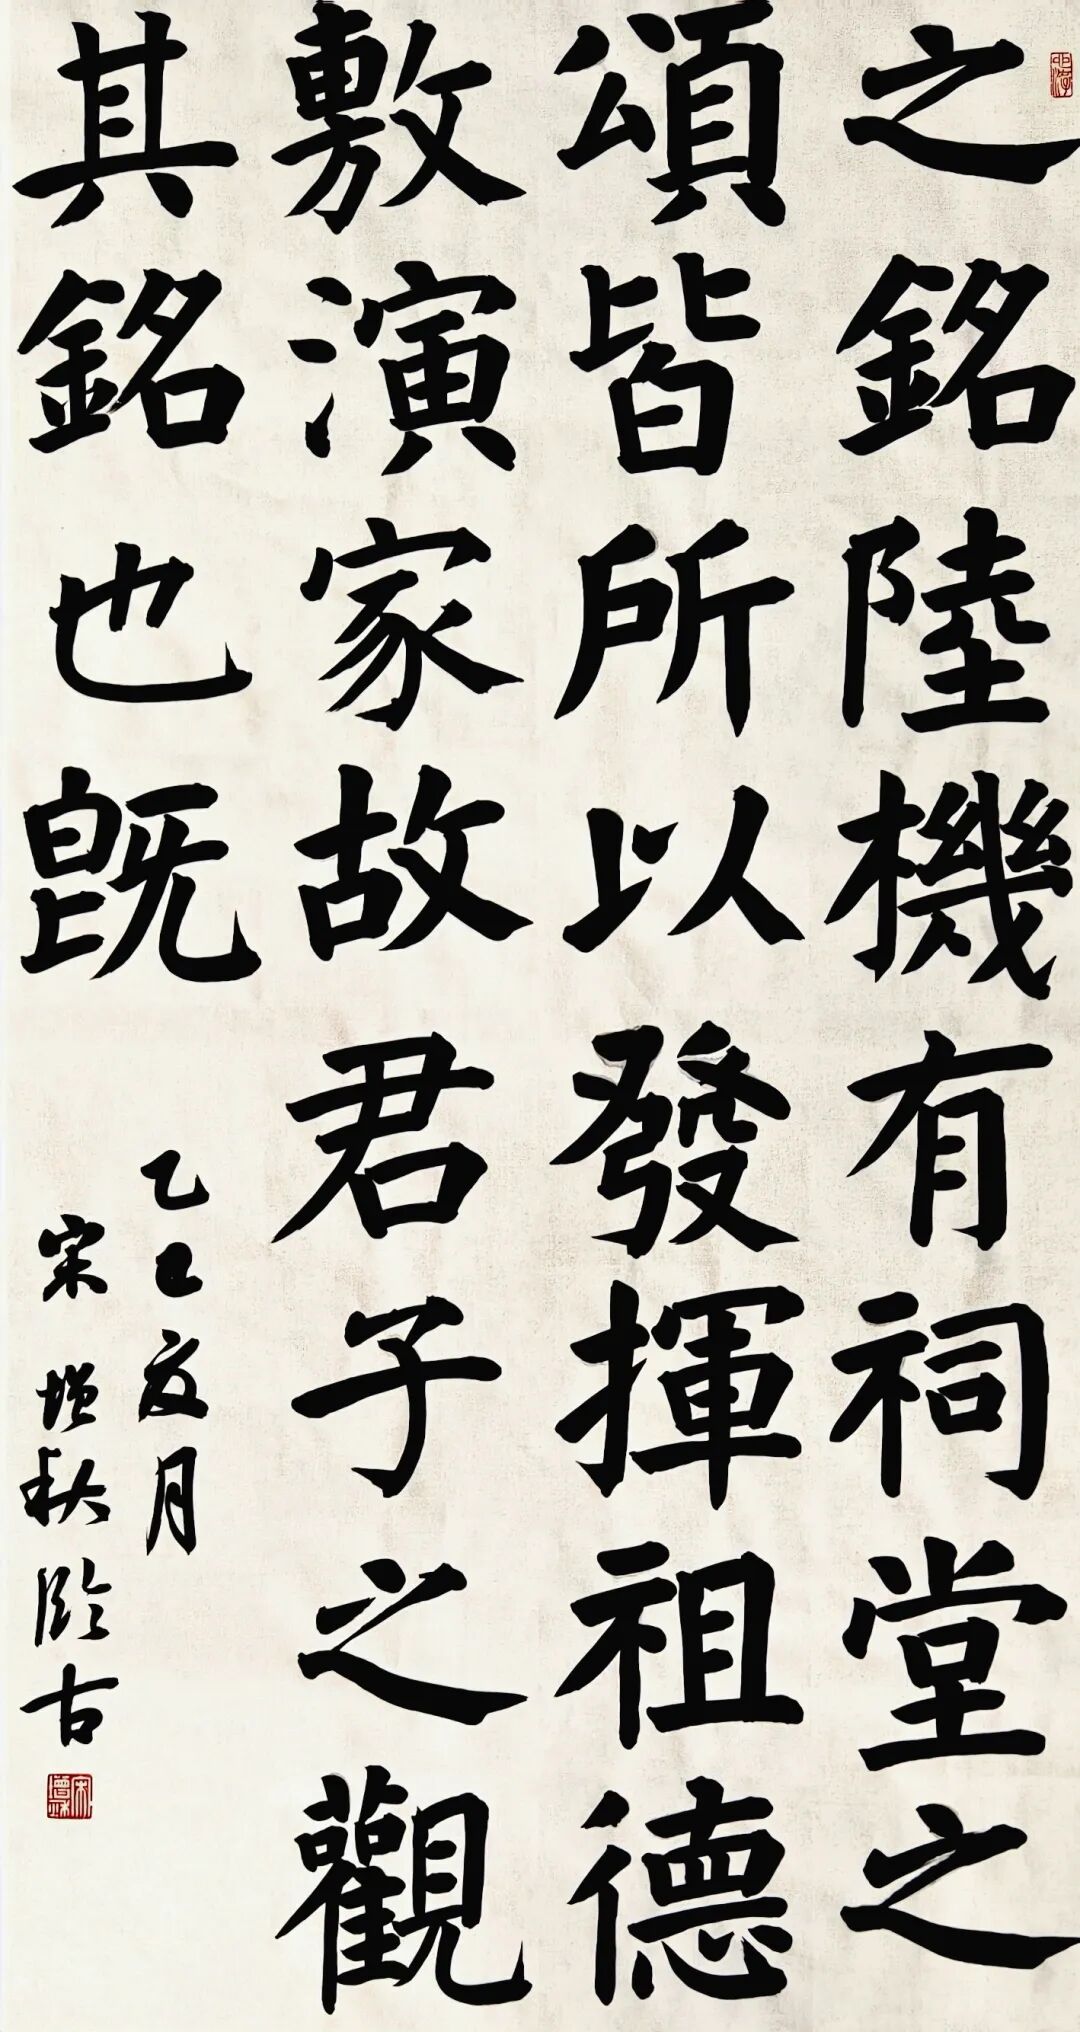 之銘陸機有祠堂之
頌皆所以發揮祖德
敷演家故君子之觀
其銘也既
乙巳夏月
宋增秋臨古